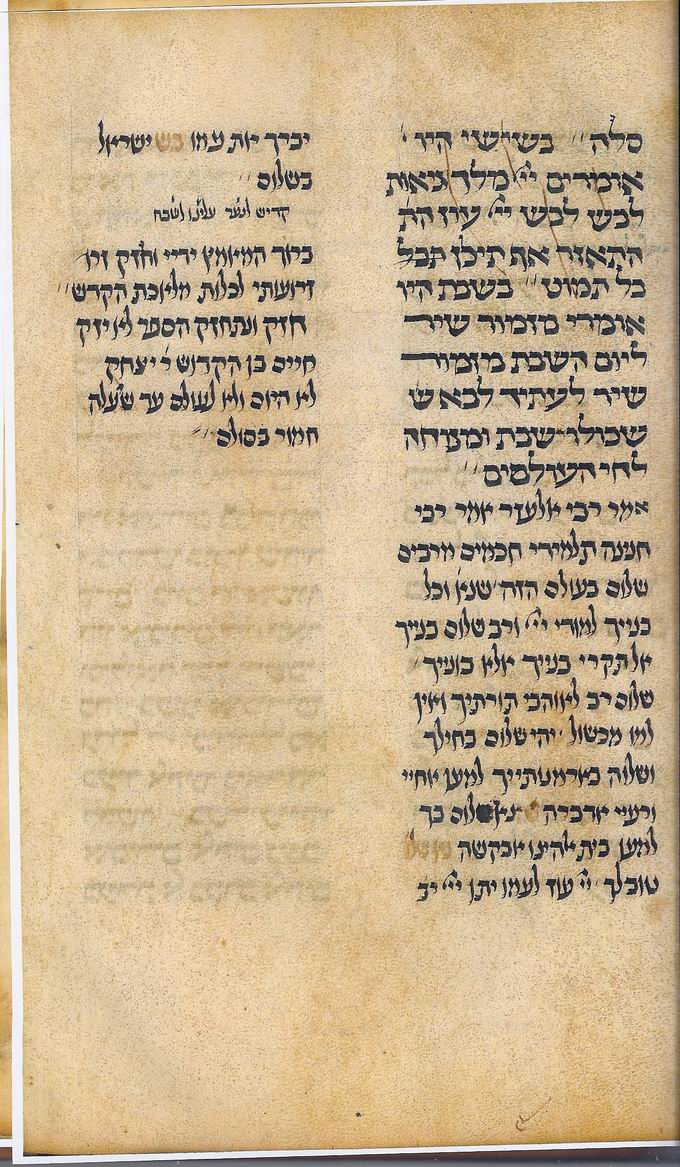 סלה״ בשישי היו
אומרים ייי מלך גיאות
לבש לבש ייי עוז הת
התאזר אף תיכון תבל
בל תמוט״ בשבת היו
אומרי מזמור שיר
ליום השבת מזמור
שיר לעתיד לבא שי
שכולו שבת ומנוחה
לחי העולמים״
אמר רבי אלעזר אמר רבי
חנינה תלמידי חכמים מרבים
שלום בעולם הזה שנא׳ וכל
בניך למודי ייי ורב שלום בניך
אל תקרי בניך אלא בוניך
שלום רב לאוהבי תורתיך ואין
למו מכשול יהי שלום בחילך
ושלוה בארמנותייך למען אחיי
ורעיי אדברה נא שלום בך
למען בית אלהינו אבקשה
טוב לך ייי עוז לעמו יתן ייי יב
יברך את עמו בש ישראל
בשלום״
קדיש לנער עלינו לשבח
ברוך המאמץ ידיי וחזק זרו
זרועותי לכלות מלאכת הקדש״
חזק ונתחזק הסופר לא יזק
חיים בן הקדוש ר׳ יצחק
לא היום ולא לעולם עד שיעלה
חמור בסולם״